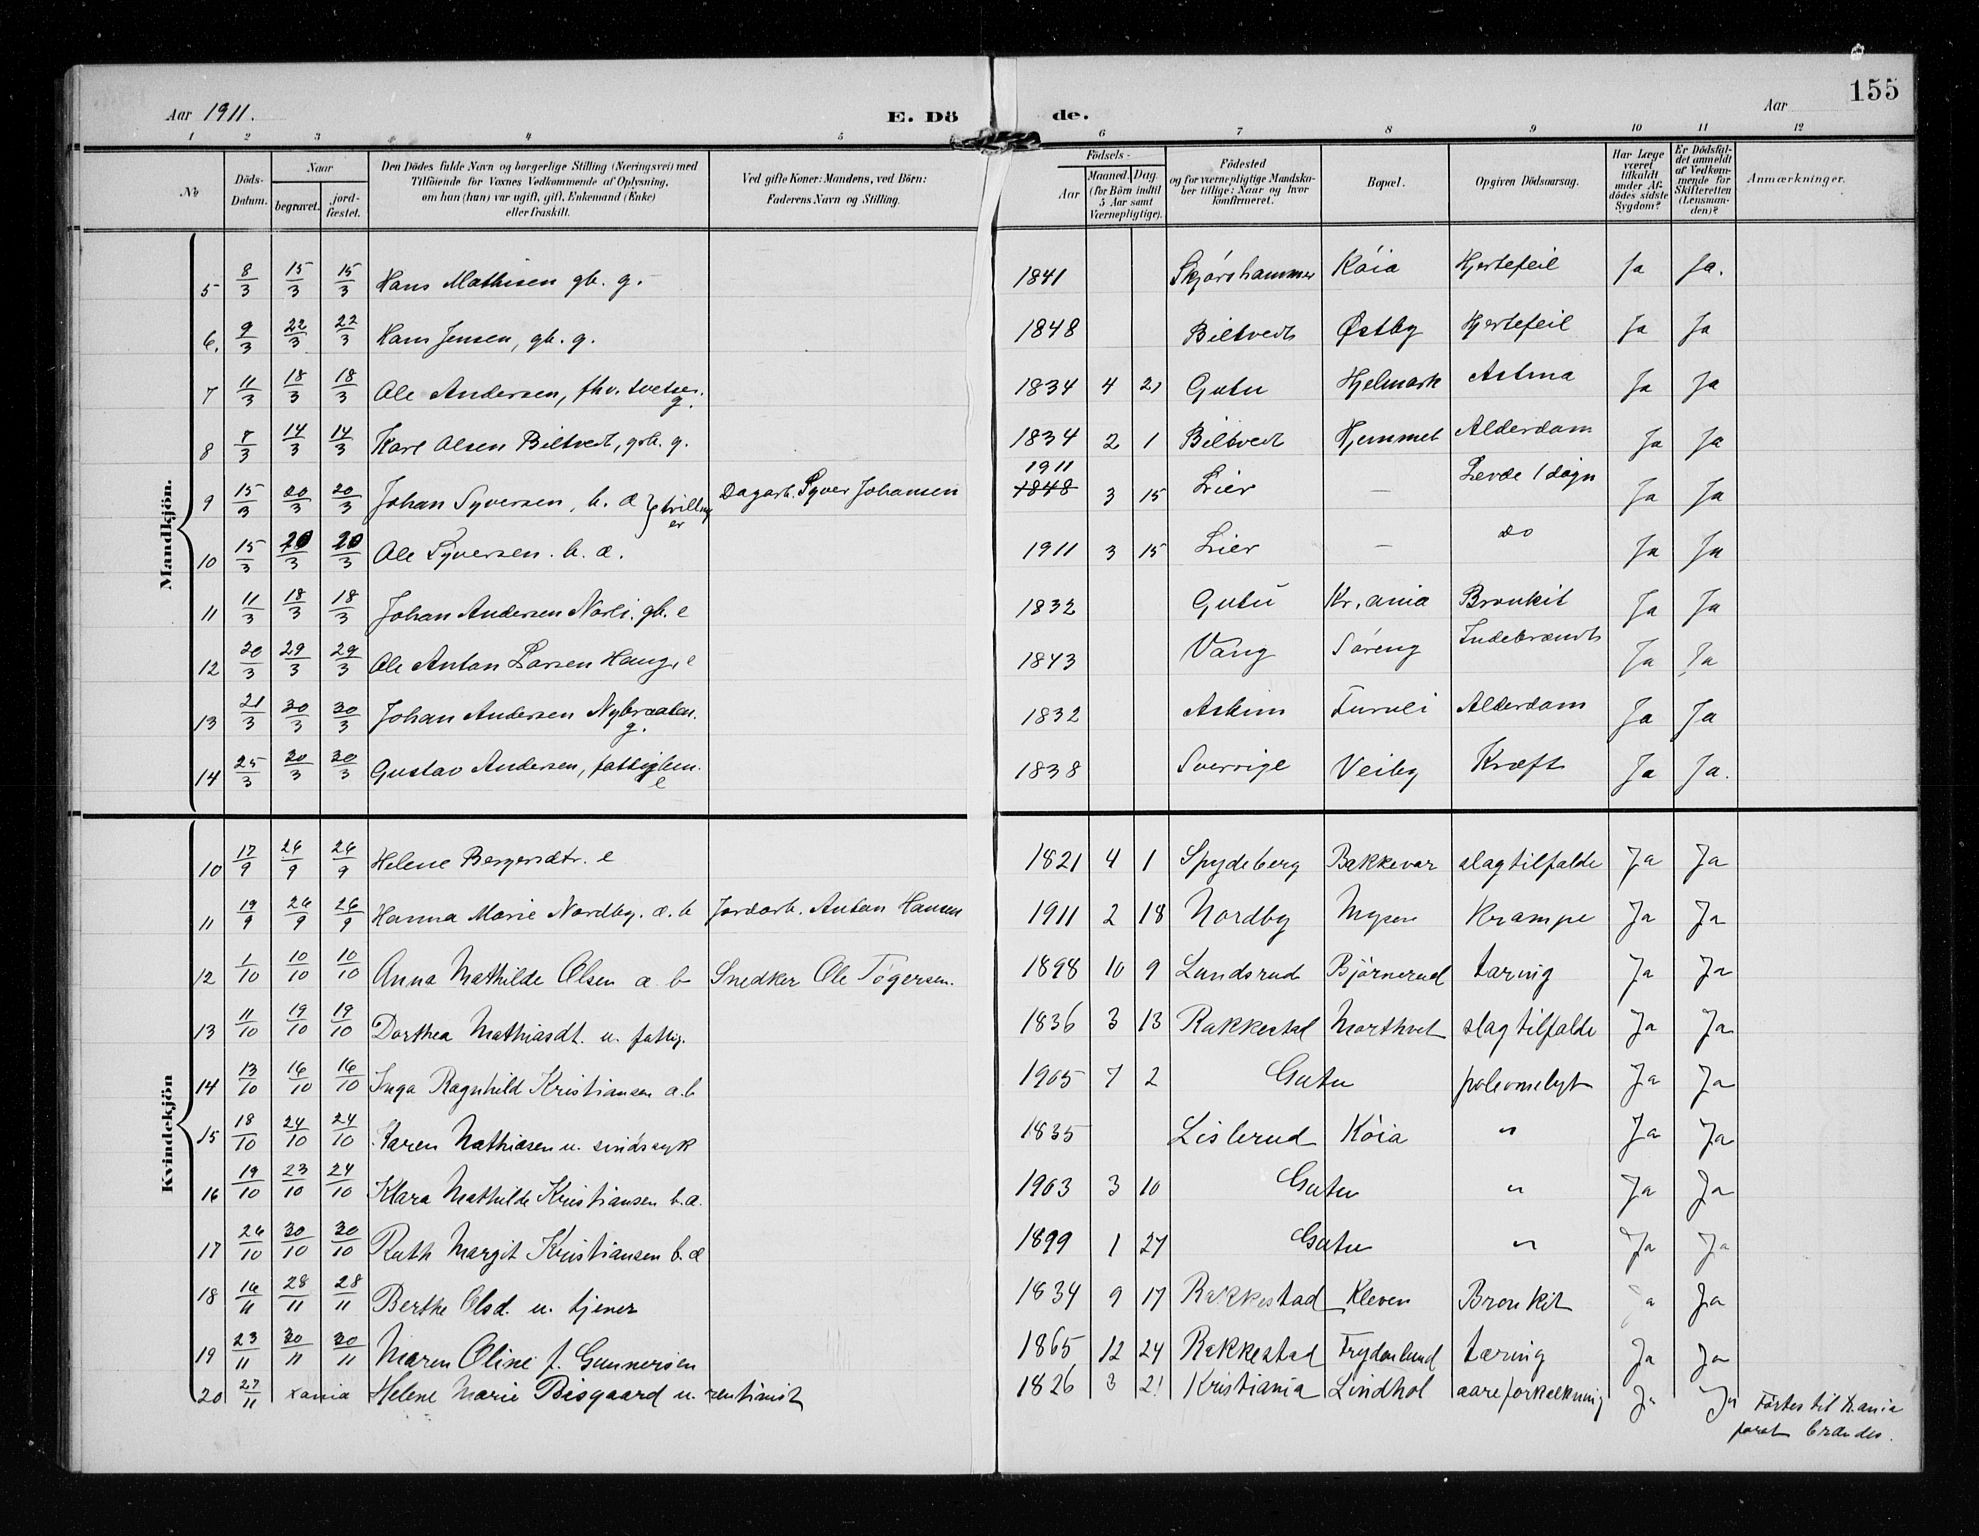 155
Aar 1911. E. Dö de. Aar
1 2 3 4 5 6 7 8 9 10 11 12
No
Döds-Datum.
Naar
begravet.
jord-fæstet.
Den Dödes fulde Navn og borgerlige Stilling (Næringsvei) med
Tilföiende for Voxnes Vedkommende af Oplysning,
om han (hun) var ugift, gift, Enkemand (Enke)
eller fraskilt.
Ved gifte Koner: Mandens, ved Börn:
Faderens Navn og Stilling.
Födsels-
Aar
Maaned. Dag.
(for Börn indtil
5 Aar samt
Værnepligtige).
Födested
og for værnepligtige Mandska-
ber tillige: Naar og hvor
konfirmeret.
Bopæl.
Opgiven Dödsaarsag.
Har Læge
været
tilkaldt
under Af-
dödes sidste
Sygdom?
Er Dödsfal-
det anmeldt
af Vedkom-
mende for
Skifteretten
(Lensman-
den)?
Anmærkninger.
Mandkjön.
5 8/3 15/3 15/3 Hans Mathisen gb. g. 1841 Skjørshammer Köia Hjertefeil Ja Ja.
6. 9/3 22/3 22/3 Hans Jensen, gb. g. 1848 Biltvedt Østby Hjertefeil Ja Ja
7 11/3 18/3 18/3 Ole Andersen, fhv. g. 1834 4 21 Gutu Hjelmark Astma Ja Ja
8 7/3 14/3 14/3 Karl Olsen Biltvedt, grb. g. 1834 2 1 Biltvedt Hjemmet Alderdom Ja Ja
9 15/3 20/3 20/3 Johan Syversen, b. æ } tvillinger Dagarb. Syver Johansen 1848 1911 3 15 Lier — Levde 1 døgn Ja Ja
10 15/3 20/3 20/3 Ole Syversen. b. æ. 1911 3 15 Lier — do Ja Ja
11 11/3 18/3 18/3 Johan Andersen Norli. gb. e 1832 Gutu Kr.ania Bronkit Ja Ja
12 20/3 29/3 29/3 Ole Anton Larsen Haug, e 1843 Vang Søreng Ja Ja
13 21/3 30/3 30/3 Johan Andersen Nybraaten. g. 1832 Askim Furuli Alderdom Ja Ja
14 25/3 30/3 30/3 Gustav Andersen, fattiglem. e 1838 Sverrige Veiby Kræft Ja Ja.
Kvindekjön
10 17/9 26/9 26/9 Helene Bergersdtr. e 1821 4 1 Spydeberg Bakkevar slagtilfælde Ja Ja
11 19/9 26/9 26/9 Hanna Marie Nordby. æ. b Jordarb. Anton Hansen 1911 2 18 Nordby Mysen Krampe Ja Ja
12 1/10 10/10 10/10 Anna Mathilde Olsen æ b Snedker Ole Tøgersen. 1898 10 9 Lundsrud Bjørnerud tæring Ja Ja
13 11/10 19/10 19/10 Dorthea Mathiasdt. u. fattig. 1836 3 13 Rakkestad Morthvet slagtilfælde Ja Ja
14 13/10 16/10 16/10 Inga Ragnhild Kristiansen æ.b 1905 7 2 Gutu Ja Ja
15 18/10 24/10 24/10 Karen Mathiesen u. sindssyk 1835 Lislerud Köia " Ja Ja
16 19/10 23/10 24/10 Klara Mathilde Kristiansen b.æ. 1903 3 10 Gutu " Ja Ja
17 26/10 30/10 30/10 Ruth Margit Kristiansen b. æ 1899 1 27 Gutu " Ja Ja
18 16/11 28/11 28/11 Berthe Olsd. u. tjener 1834 9 17 Rakkestad Kleven Bronkit Ja
19 23/11 30/11 30/11 Maren Oline f. Gunnersen 1865 12 24 Rakkestad Frydenlund tæring Ja Ja
20 27/11 xania Helene Marie Bisgaard u. rentienist 1826 3 21 Kristiania Lindhol aareforkalkning Ja Ja Førtes til Kr.ania
forat brændes.